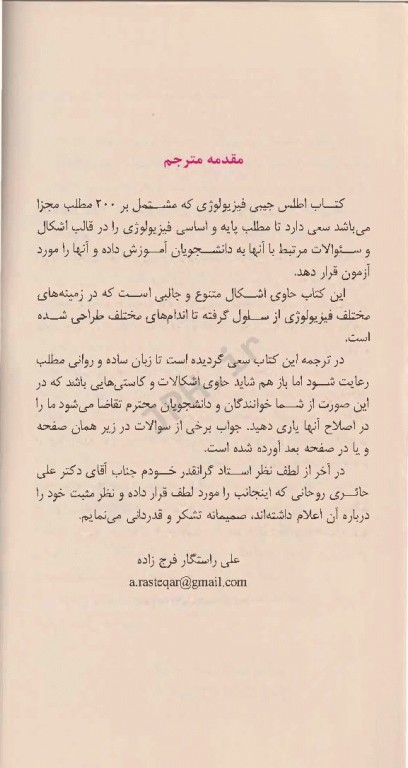 مقدمه مترجم
کتاب اطلس جیبی فیزیولوژی که مشتمل بر ۲۰۰ مطلب مجزا
می‌باشد سعی دارد تا مطلب پایه و اساسی فیزیولوژی را در قالب اشکال
و سئوالات مرتبط با آنها به دانشجویان آموزش داده و آنها را مورد
آزمون قرار دهد.
این کتاب حاوی اشکال متنوع و جالبی است که در زمینه‌های
مختلف فیزیولوژی از سلول گرفته تا اندام‌های مختلف طراحی شده
است.
در ترجمه این کتاب سعی گردیده است تا زبان ساده و روانی مطلب
رعایت شود اما باز هم شاید حاوی اشکالات و کاستی‌هایی باشد که در
این صورت از شما خوانندگان و دانشجویان محترم تقاضا می‌شود ما را
در اصلاح آنها یاری دهید. جواب برخی از سوالات در زیر همان صفحه
و یا در صفحه بعد آورده شده است.
در آخر از لطف نظر استاد گرانقدر خودم جناب آقای دکتر علی
حائری روحانی که اینجانب را مورد لطف قرار داده و نظر مثبت خود را
درباره آن اعلام داشته‌اند، صمیمانه تشکر و قدردانی می‌نمایم.
علی راستگار فرج زاده
a.rasteqar@gmail.com